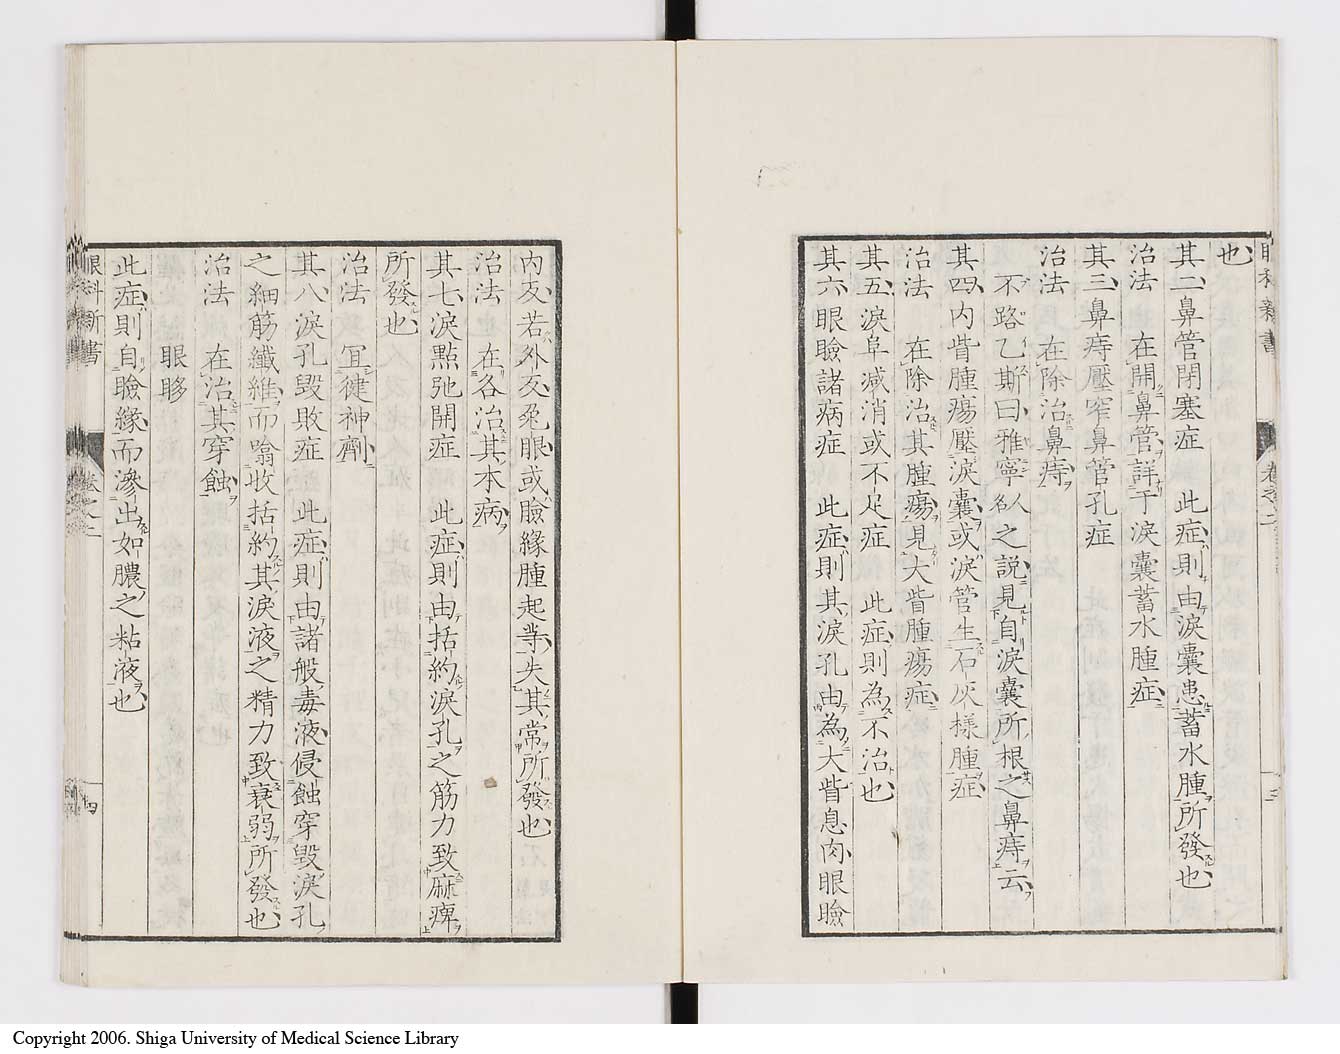 眼科新書 卷之二 三
也
其二鼻管閉塞症 此症則由淚囊患蓄水腫所發也
治法 在開鼻管詳于淚囊蓄水腫症
其三鼻痔壓窄鼻管孔症
治法 在除治鼻痔
不路乙斯曰雅寧似之説見自淚囊所根之鼻痔云
其四內眥腫瘍壓淚囊或淚管生石灰樣腫症
治法 在除治其腫瘍見大眥腫瘍症
其五淚阜減消或不足症 此症則為不治也
其六眼瞼諸病症 此症則其淚孔由為大眥息肉眼瞼
內反若外反兔眼或瞼緣腫起等失其常所發也
治法 在各治其本病
其七淚點弛開症 此症則由括約淚孔之筋力致麻痺
所發也
治法 宜徤神劑
其八淚孔毀敗症 此症則由諸般毒液侵蝕穿毀淚孔
之細筋纖維而噏收括約其淚液之精力致衰弱所發也
治法 在治其穿蝕
眼眵
此症則自瞼緣而滲出如膿之粘液也
眼科新書 卷之二 四
Copyright 2006. Shiga University of Medical Science Library